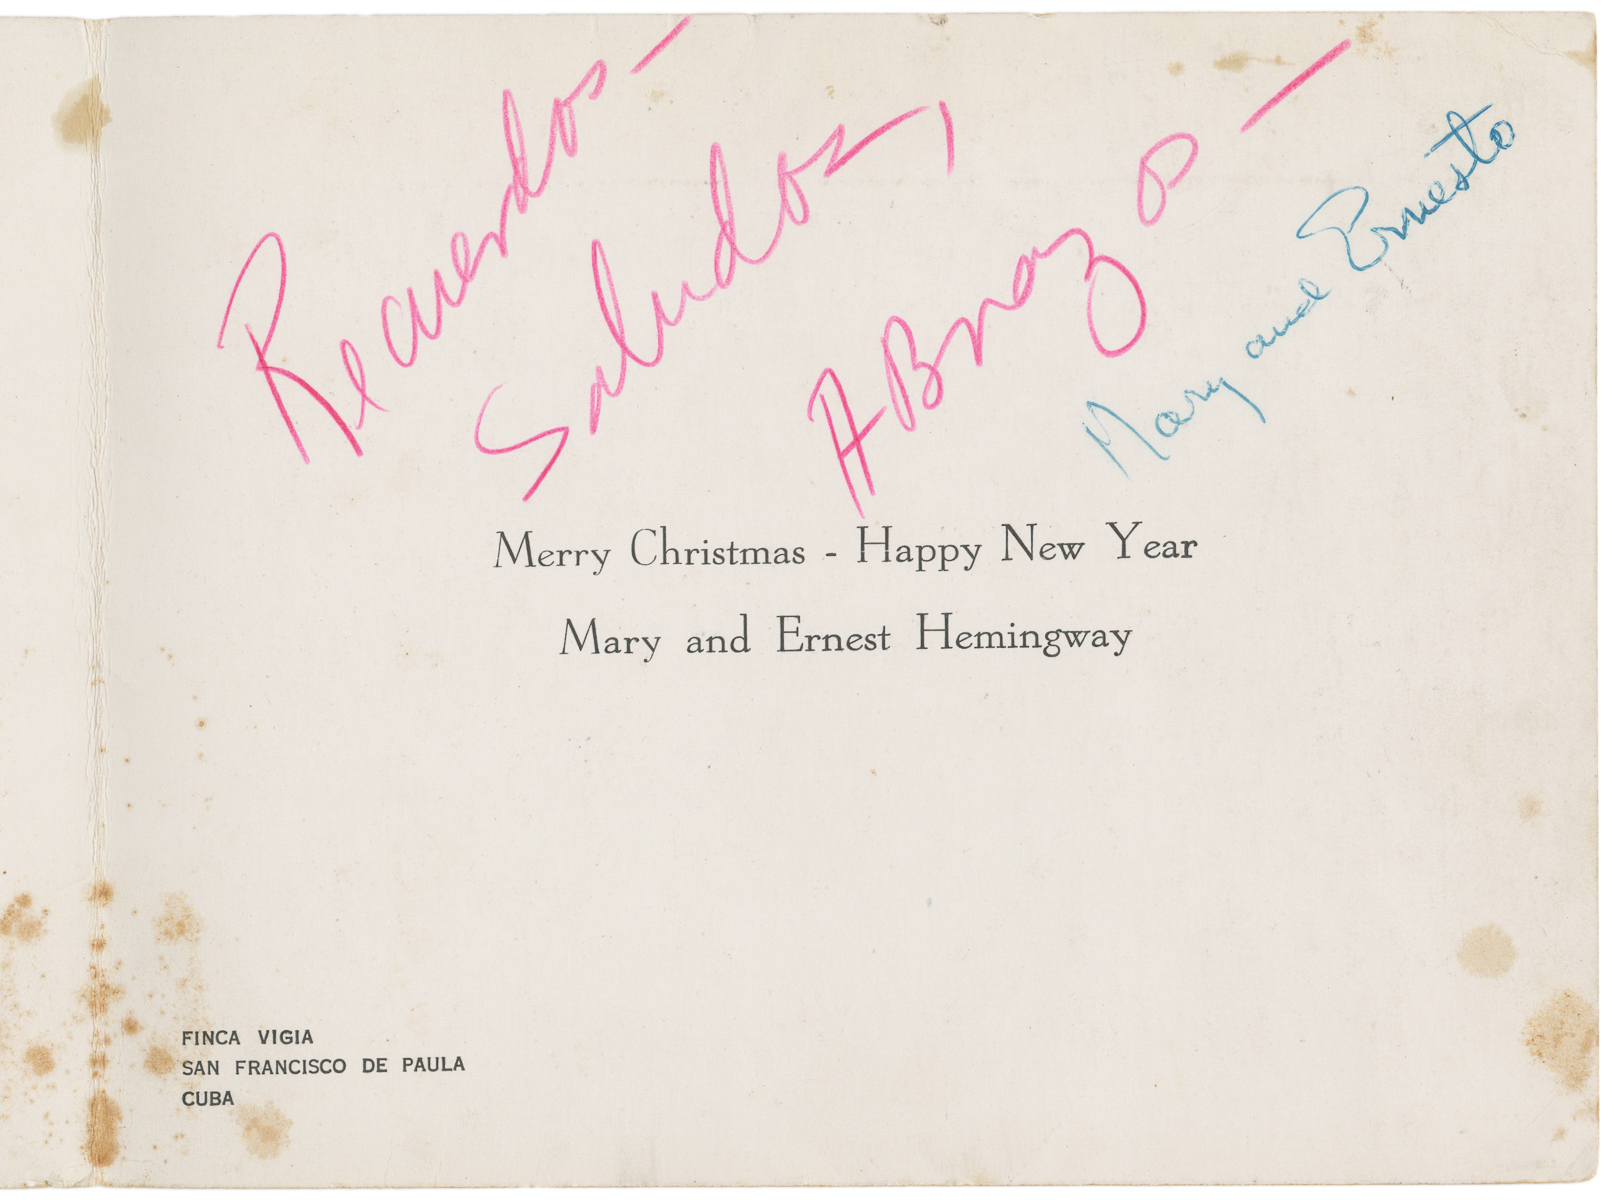 Recuerdos —
Saludos,
ABrazo —
Mary and Ernesto
Merry Christmas - Happy New Year
Mary and Ernest Hemingway
FINCA VIGIA
SAN FRANCISCO DE PAULA
CUBA